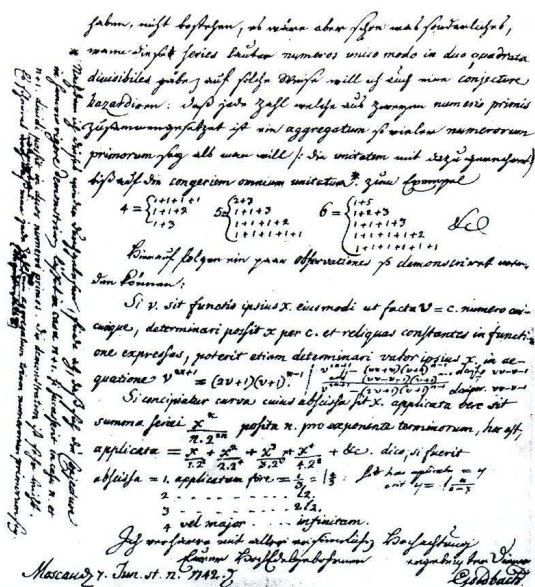 haben, nicht bestehen, es wäre aber schon was sonderliches,
wann diese series lauter numeros unico modo in duo quadrata
divisibiles gäbe, auf solche Weise will ich auch eine conjecture
hazardiren: daß jede Zahl welche aus zweyen numeris primis
zusammengesetzet ist ein aggregatum so vieler numerorum
primorum sey als man will /: die unitatem mit dazu gerechnet :/
biß auf die congeriem omnium unitatum*. zum Exempel
4 = { 1+1+1+1
1+1+2
1+3
5 = { 2+3
1+1+3
1+1+1+2
1+1+1+1+1
6 = { 1+5
1+2+3
1+1+1+3
1+1+1+1+2
1+1+1+1+1+1
&c
Hierauf folgen ein paar observationes so demonstriret werden
den können:
Si v. sit functio ipsius x. eiusmodi ut facta v = c. numero cui-
cunque, determinari possit x per c. et reliquas constantes in functi-
one expressas, poterit etiam determinari valor ipsius x. in ae-
quatione v^{2n+1} = (2v+1)(v+1)^{n-1}
Si concipiatur curva cuius abscissa sit x. applicata vero sit
summa seriei x^n / n.2^{2n} posita n. pro exponente terminorum, hoc est,
applicata = x/1.2^2 + x^2/2.2^4 + x^3/3.2^6 + x^4/4.2^8 + &c. dico, si fuerit
abscissa = 1. applicatam fore = l 4/3
2 . . . . . . . . . . l2.
3 . . . . . . . . . . 2l2.
4 vel major . . . infinitam.
Ich verharre mit aller ersinnlichen Hochachtung
Eurer Hochedelgebohrnen ergebenster Diener
Moscau d. 7. Jun. st. n. 1742. Goldbach.
* Nachdem ich dieses wieder durchgelesen, finde ich daß sich die conjecture
in summo rigore demonstriren lässet in casu n+1. si successerit in casu n. et
n+1. dividi possit in duos numeros primos. Die demonstration ist sehr leicht.
Es scheinet wenigstens, daß eine jede Zahl die größer ist als 2 ein aggregatum trium numerorum primorum sey.